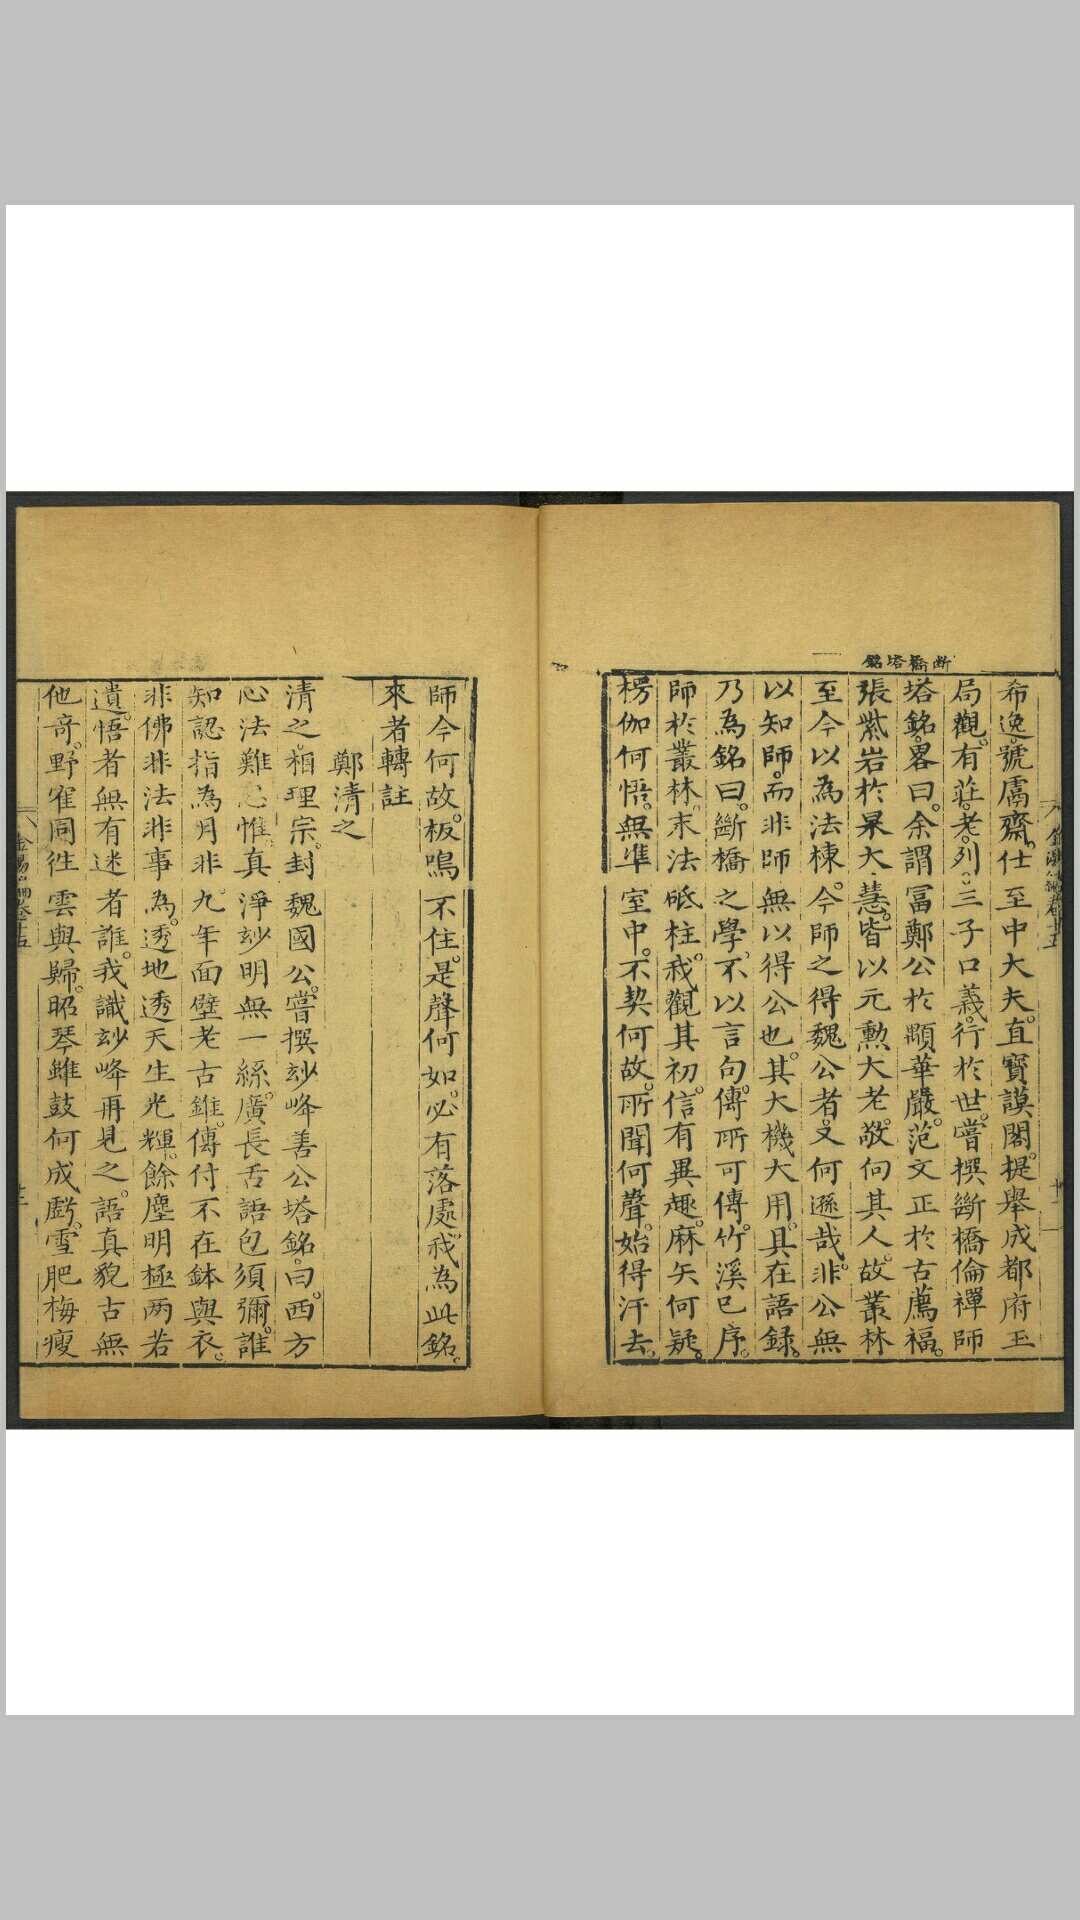 斷橋塔銘
希逸號鬳齋仕至中大夫直寶謨閣提舉成都府玉
局觀有莊老列三子口義行於世嘗撰斷橋倫禪師
塔銘畧曰余謂富鄭公於顒華嚴范文正於古薦福
張紫岩於杲大慧皆以元勳大老敬向其人故叢林
至今以為法棟今師之得魏公者又何遜哉非公無
以知師而非師無以得公也其大機大用具在語錄
乃為銘曰斷橋之學不以言句傳所可傳竹溪已序
師於叢林末法砥柱我觀其初信有異趣麻矢何疑
楞伽何悟無準室中不契何故所聞何聲始得汗去
師今何故板鳴不住是聲何如必有落處我為此銘
來者轉註
鄭清之
清之相理宗封魏國公嘗撰玅峰善公塔銘曰西方
心法難思惟真淨玅明無一絲廣長舌語包須彌誰
知認指為月非九年面壁老古錐傳付不在鉢與衣
非佛非法非事為透地透天生光輝餘塵明極两若
遺悟者無有迷者誰我識玅峰再見之語真貌古無
他奇野寉同徃雲與歸昭琴雖鼓何成虧雪肥梅瘦